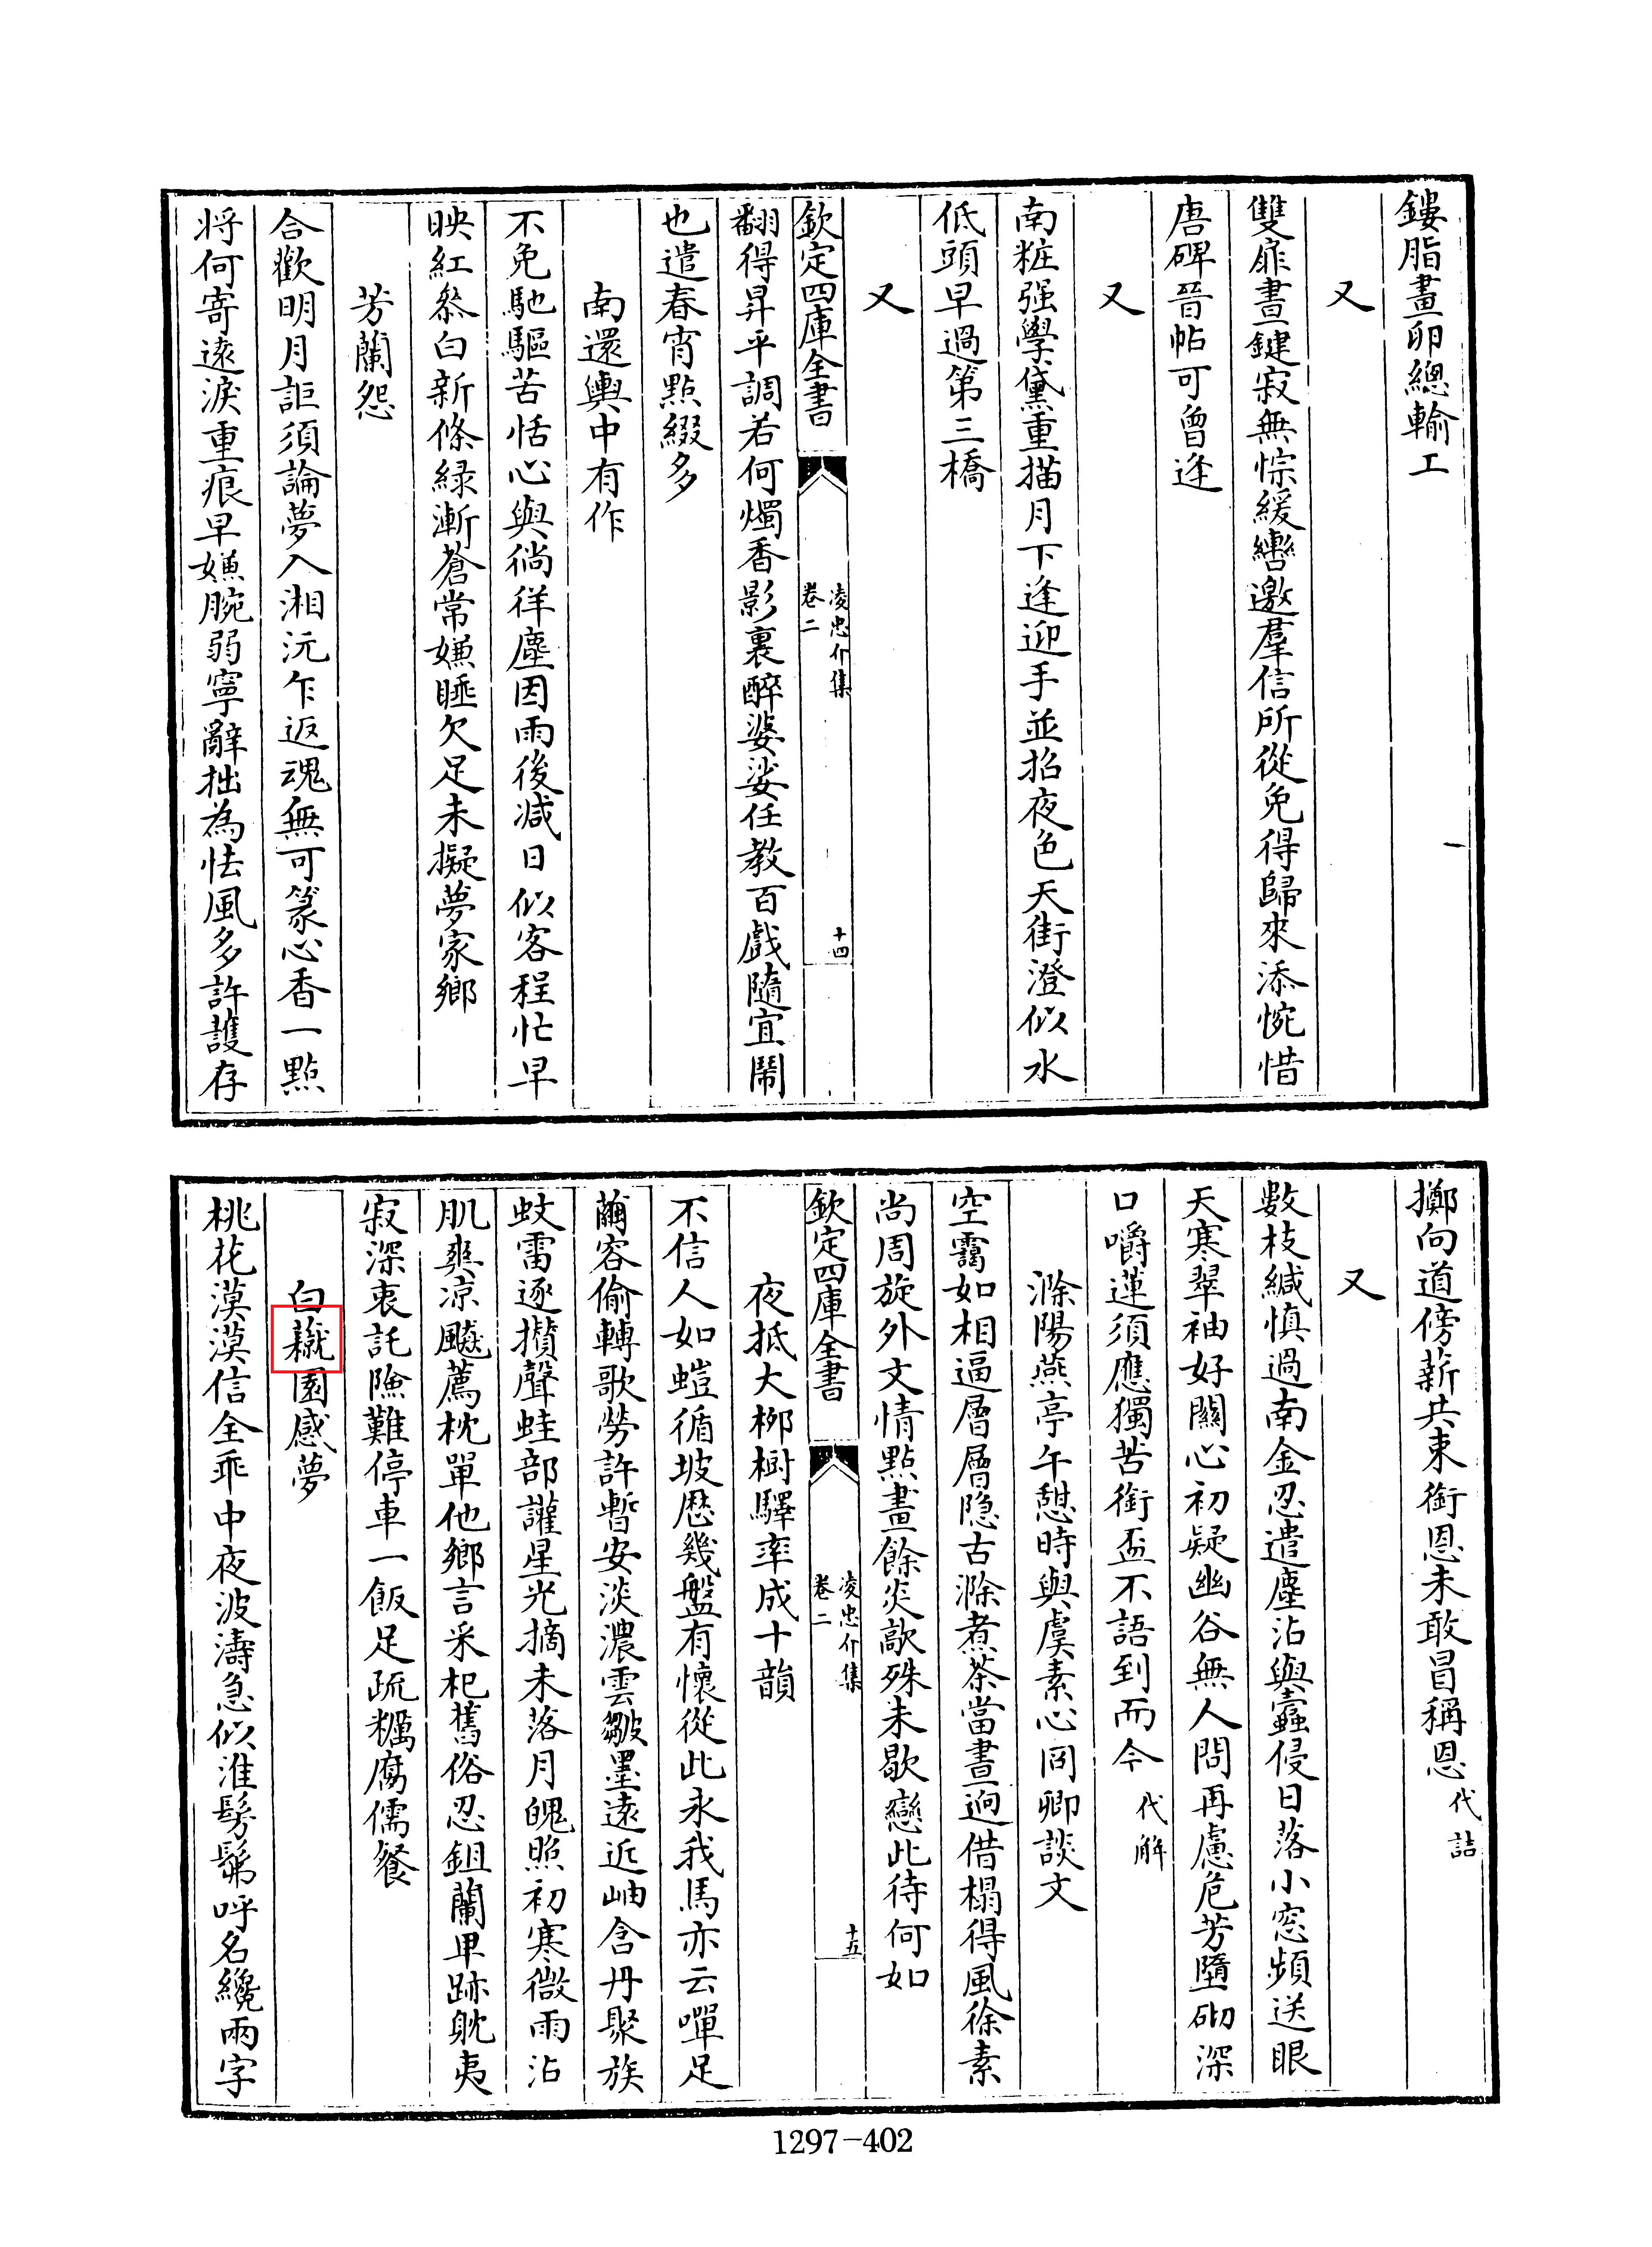 鏤脂畫卵總輸工
又
雙扉晝鍵寂無悰緩轡邀羣信所從免得歸來添惋惜
唐碑晉帖可曾逢
又
南粧强學黛重描月下逢迎手並招夜色天街澄似水
低頭早過第三橋
又
欽定四庫全書
凌忠介集
卷二
十四
翻得昇平調若何燭香影裏醉婆娑任教百戲隨宜鬧
也遣春宵點綴多
南還輿中有作
不免馳驅苦恬心與徜徉塵因雨後減日似客程忙早
映紅叅白新條緑漸蒼常嫌睡欠足未擬夢家鄉
芳蘭怨
合歡明月詎須論夢入湘沅乍返魂無可篆心香一點
將何寄遠淚重痕早嫌腕弱寧辭拙為怯風多許護存
擲向道傍薪共束銜恩未敢冒稱恩代詰
又
數枝緘慎過南金忍遣塵沾與蠧侵日落小窓頻送眼
天寒翠袖好關心初疑幽谷無人問再慮危芳墮砌深
口嚼蓮須應獨苦銜盃不語到而今代解
滁陽燕亭午憩時與虞素心同卿談文
空靄如相逼層層隐古滁煮茶當晝逈借榻得風徐素
尚周旋外文情點畫餘炎歊殊未歇戀此待何如
欽定四庫全書
凌忠介集
卷二
十五
夜抵大栁樹驛率成十韻
不信人如螘循坡歴幾盤有懷從此永我馬亦云嘽足
繭容偷轉歌勞許暫安淡濃雲皺墨遠近岫含丹聚族
蚊雷逐攢聲蛙部讙星光摘未落月魄照初寒微雨沾
肌爽凉飈薦枕單他鄉言采杞舊俗忍鉏蘭甲跡躭夷
寂深衷託險難停車一飯足疏糲腐儒餐
白䕙園感夢
桃花漠漠信全乖中夜波濤急似淮髣髴呼名纔兩字
1297-402